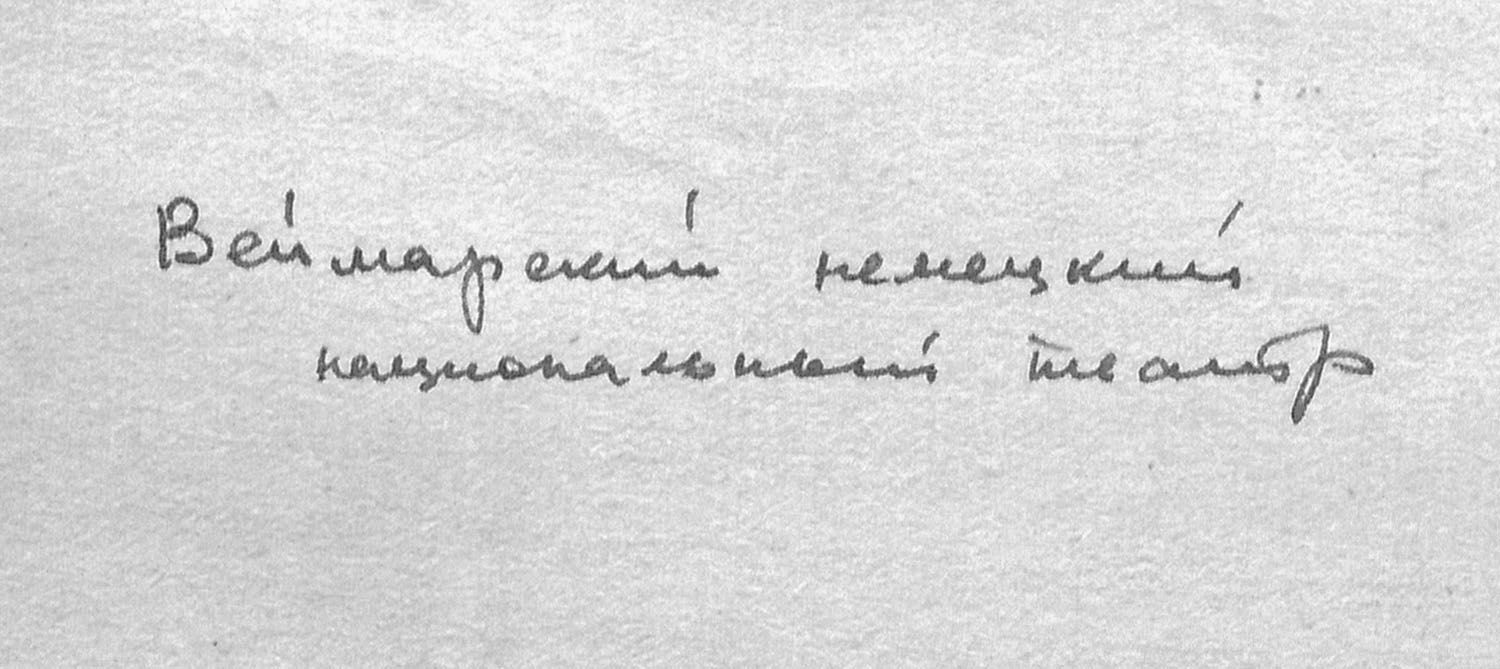 Веймарский немецкий
национальный театр